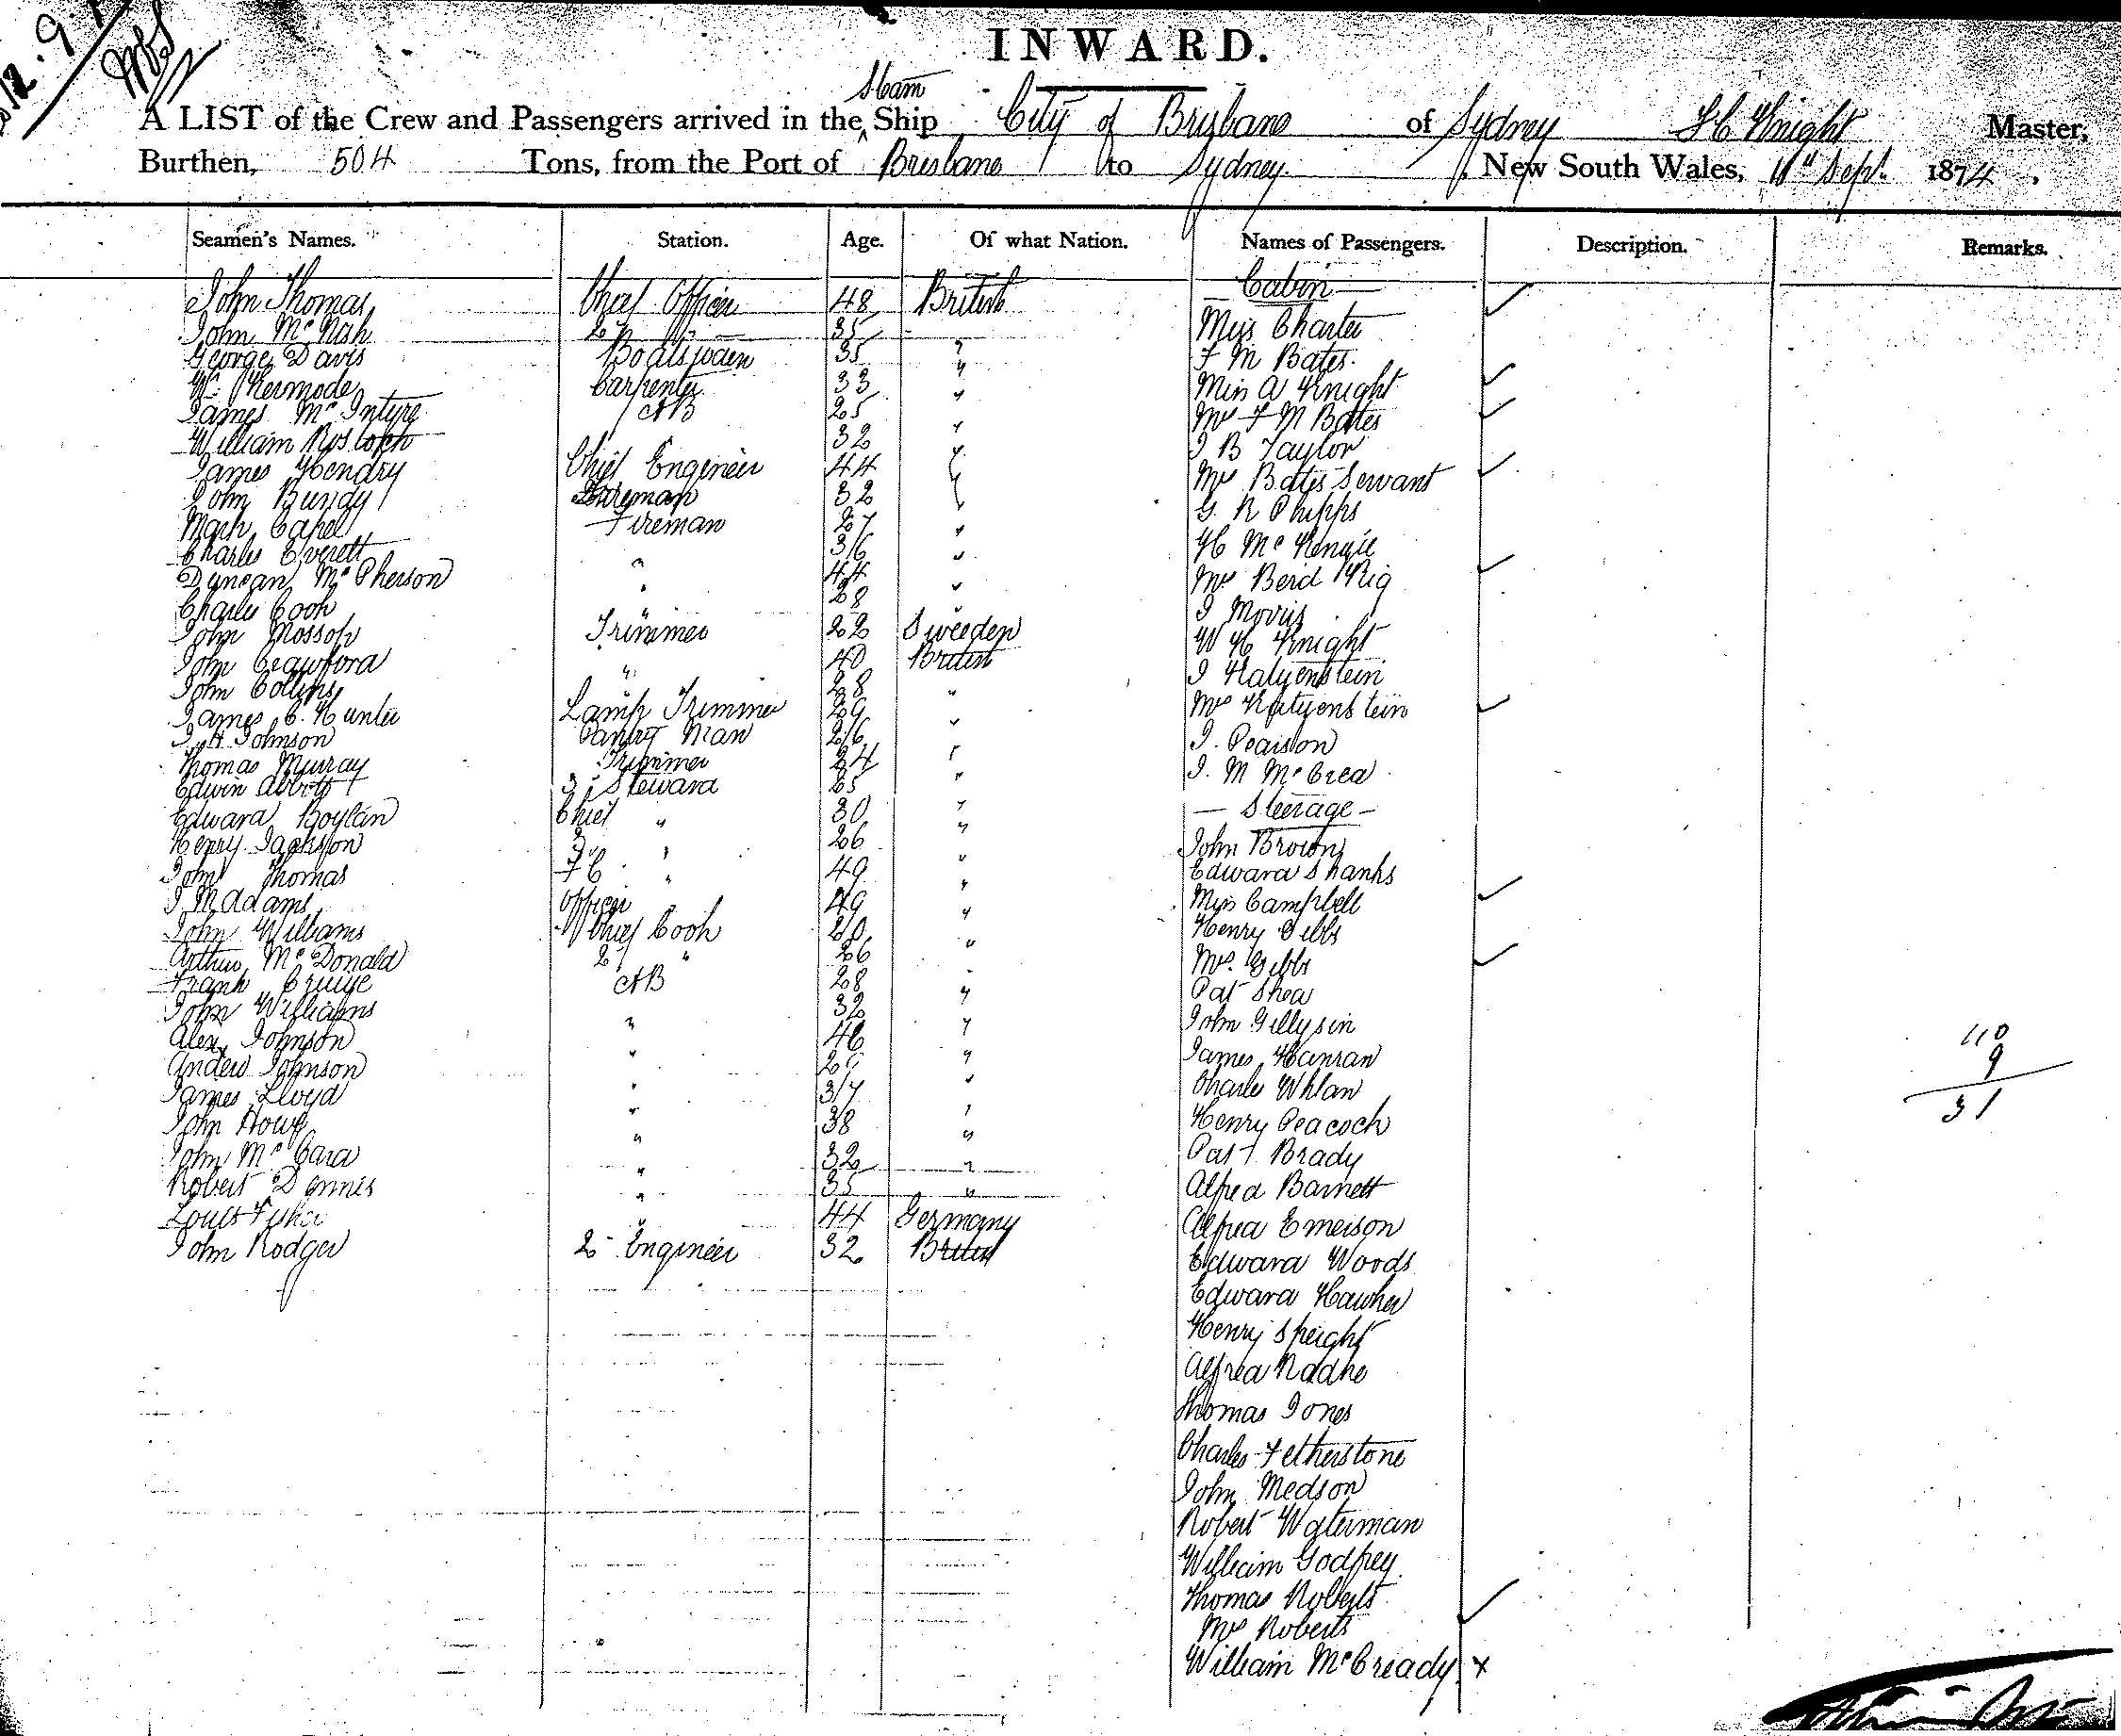 12.9.
INWARD.
Steam
A LIST of the Crew and Passengers arrived in the ^ Ship City of Brisbane of Sydney Master,
Burthen, 504 Tons, from the Port of Brisbane to Sydney, New South Wales, 11th Sept. 1874,
Seamen's Names. Station. Age. Of what Nation. Names of Passengers. Description. Remarks.
Cabin
John Thomas Chief Officer 48 British Miss Charter ✓
John McNish 2nd 35 F M Bates
George Davis Boatswain 35 " Miss A Knight ✓
Wm Kermode Carpenter 33 " Mrs F M Bates ✓
James McIntyre AB 25 " J B Taylor
William 32 " Mrs Bates Servant ✓
James Hendry Chief Engineer 44 " G R Phipps
John Bundy 32 " H McKenzie
Mark Capel Fireman 27 " Mrs ✓
Charles Everett " 36 " J Morris
Duncan McPherson " 44 " W H Knight
Charles Cook " 28 " J Katzenstein
John Mossop Trimmer 22 Sweeden Mrs Katzenstein ✓
John Crawford " 40 British J. Pearson
John Collins " 28 " J. M McCrea
James C. Hunter Lamp Trimmer 29 " — Steerage —
J. H Johnson Pantry Man 26 " John Brown
Thomas Murray Trimmer 24 " Edward Shanks
Edwin Abbott 3 Steward 25 " Miss Campbell ✓
Edward Boylan Chief " 30 " Henry Gibbs
Henry Jackson 2 " 26 " Mrs. Gibbs ✓
John Thomas FC " 49 " Pat Shea
J M Adams Officer 49 " John
John Williams Chief Cook 20 " James Hanran
Arthur McDonald 2 " 26 " Charles Whlan
Frank Cruize AB 28 " Henry Peacock
John Williams " 32 " Pat Brady
Alex Johnson " 46 " Alfred Barnett
Andew Johnson " 29 " Alfred Emerson
James Lloyd " 37 " Edward Woods
John Howe " 38 " Edward Hawker
John McCara " 32 " Henry Speight
Robert Dennis " 35 " Alfred
Louis Fisher " 44 Germany Thomas Jones
John Rodger 2 Engineer 32 British Charles Fetherstone
John Medson
Robert Waterman
William Godfrey
Thomas Roberts
Mrs Roberts ✓
William McCready x
110
9
31